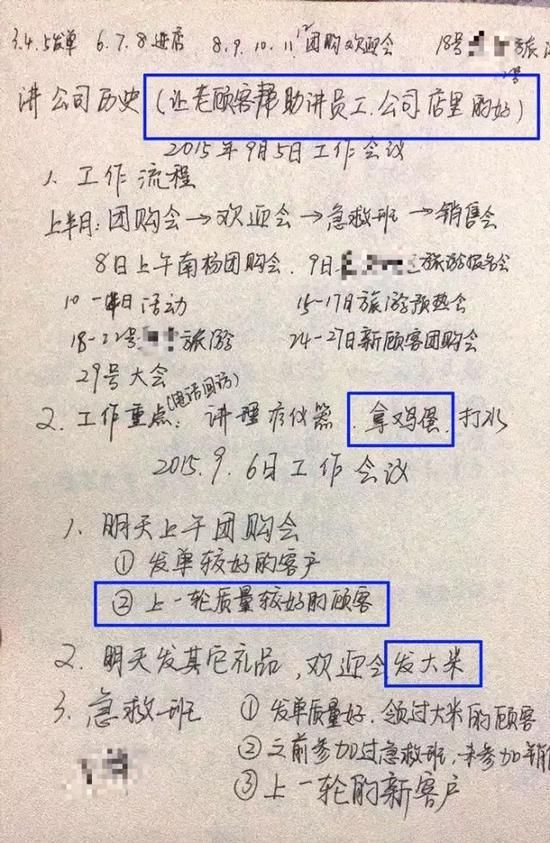 3.4.5发单 6.7.8进店 8.9.10.11.12团购欢迎会 18号 旅
讲公司历史(让老顾客帮助讲员工.公司店里的好)
2015年9月5日工作会议
1. 工作流程
上半月:团购会→欢迎会→急救班→销售会
8日上午南杨团购会. 9日 旅游报名会
10-日活动 15-17日旅游预热会
18-22号 旅游 24-27日新顾客团购会
29号大会
(电话回访)
2. 工作重点: 讲理疗仪器. 拿鸡蛋. 打水
2015.9.6日工作会议
1. 明天上午团购会
① 发单较好的客户
② 上一轮质量较好的顾客
2. 明天发其它礼品,欢迎会发大米
3. 急救班 ① 发单质量好.领过大米的顾客
② 之前参加过急救班,未参加销
③ 上一轮的新客户